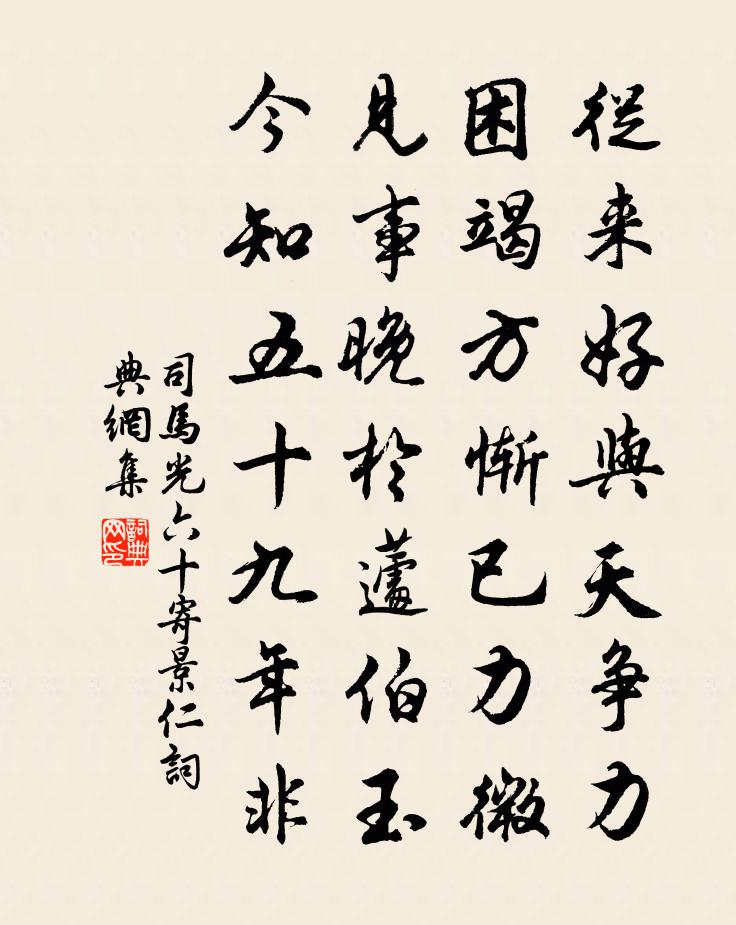 從来好與天争力
困竭方慚已力微
見事晚於蘧伯玉
今知五十九年非
司馬光六十寄景仁詞
典網集
詞典
网印